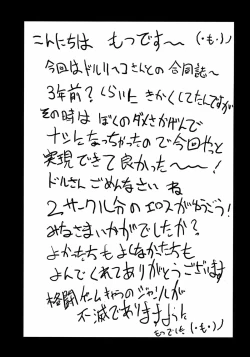 こんにちは もつです〜 (・も・)ノ
今回はドルリヘコさんとの合同誌〜
3年前?くらいに きかくしてたんですが
その時は ぼくのダメさかげんで
ナシになっちゃったので今回やっと
実現できて良かった〜〜〜!
ドルさんごめんなさい ね
2サークル分のエロスがゆうごう!
みなさまいかがでしたか?
よかった方も よくなかった方も
よんでくれてありがとうございます
格闘ゲームキャラのジャンルが
不滅でありますように
もつでした (・も・)ノ